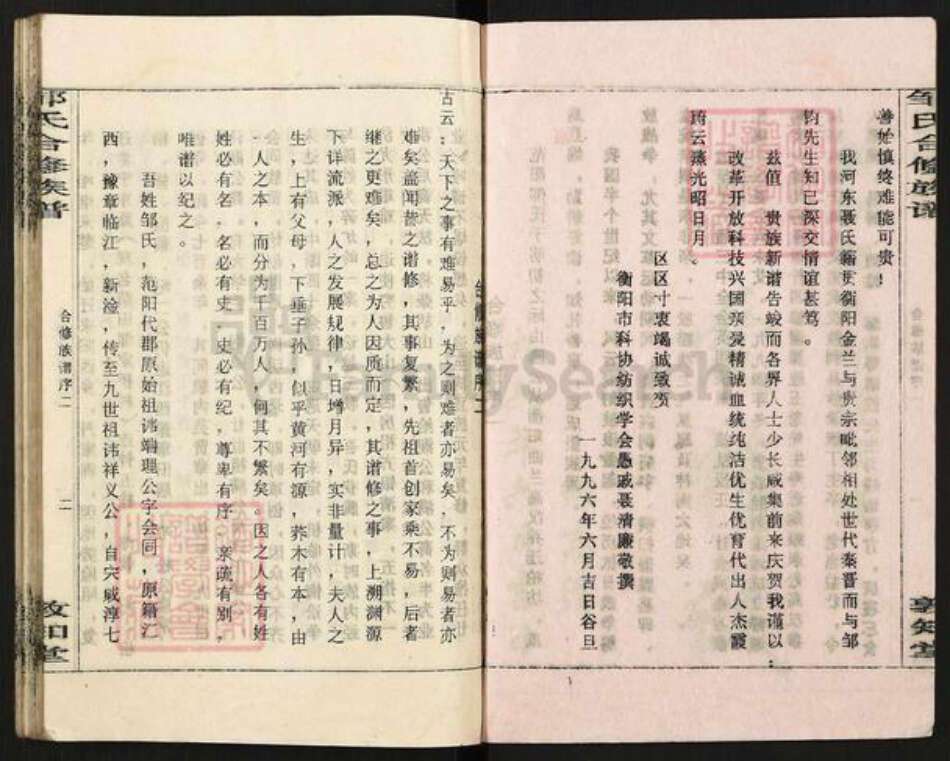 邹氏合修族谱
敦知堂
善始慎终难能可贵！
我河东聂氏籍贯衡阳金兰与贵宗毗邻相处世代秦晋而与邹
钧先生知己深交情谊甚笃。
兹值　贵族新谱告竣而各界人士少长咸集前来庆贺我谨以：
改革开放科技兴国亲爱精诚血统纯洁优生优育代出人杰霞
蔚云蒸光昭日月、
区区寸衷竭诚致贺
衡阳市科协纺织学会愚戚聂清廉敬撰
一九九六年六月吉日谷旦
合修族谱序二
古云：天下之事有难易乎，为之则难者亦易矣，不为则易者亦
难矣盖闻昔之谱修，其事复繁，先祖首创家乘不易，后者
继之更难矣，总之为人因质而定，其谱修之事，上溯渊源
下详流派，人之发展规律，日增月异，实非量计，夫人之
生，上有父母，下垂子孙，似乎黄河有源，荞木有本，由
一人之本，而分为千百万人，何其不繁矣。因之人各有姓
姓必有名，名必有史，史必有纪，尊卑有序，亲疏有别，
唯谱以纪之。
吾姓邹氏，范阳代郡原始祖讳端理公字会同，原籍江
西，豫章临江，新淦，传至九世祖讳祥义公，自宋咸淳七
邹氏合修族谱
合修族谱序二
二
敦知堂